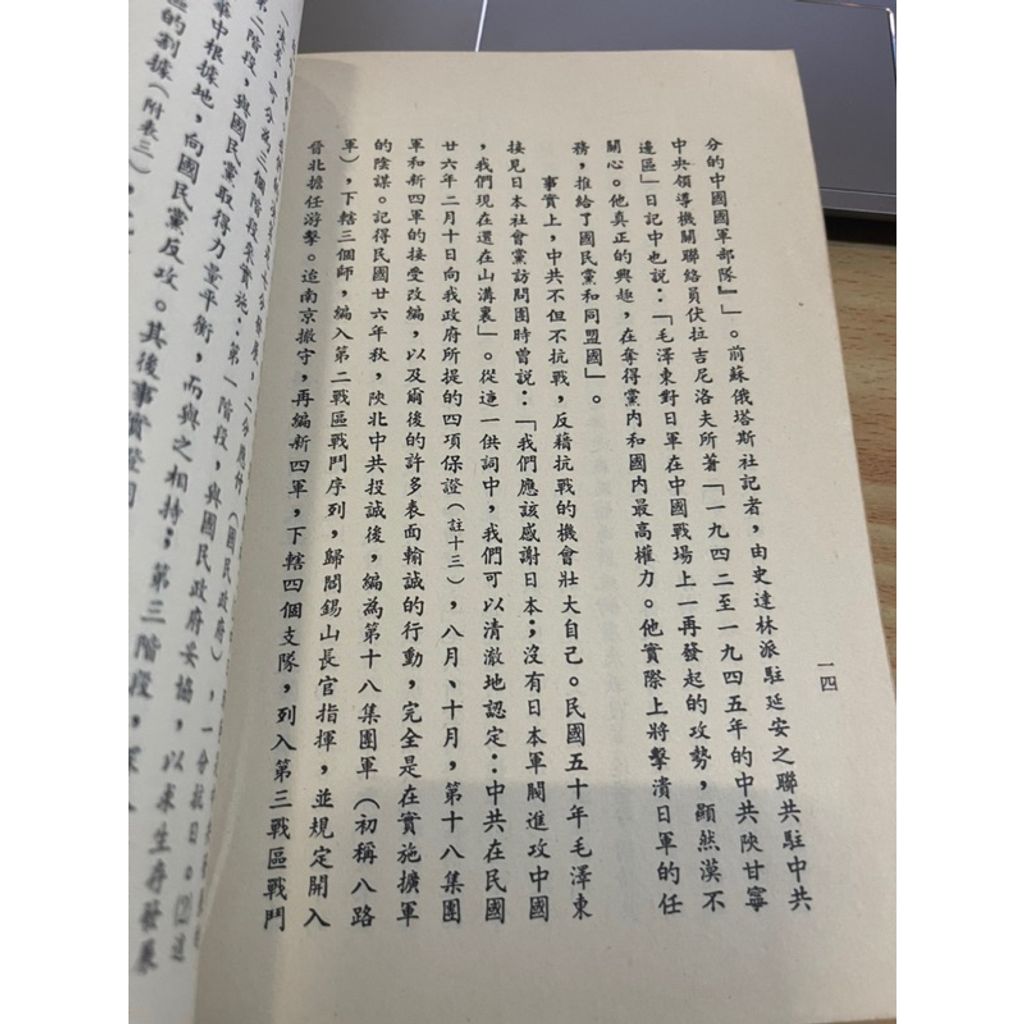 分的中國國軍部隊』」。前蘇俄塔斯社記者,由史達林派駐延安之聯共駐中共
中央領導機關聯絡員伏拉吉尼洛夫所著「一九四二至一九四五年的中共陝甘寧
邊區」日記中也說:「毛澤東對日軍在中國戰場上一再發起的攻勢,顯然漠不
關心。他真正的興趣,在奪得黨內和國內最高權力。他實際上將擊潰日軍的任
務,推給了國民黨和同盟國」。
事實上,中共不但不抗戰,反藉抗戰的機會壯大自己。民國五十年毛澤東
接見日本社會黨訪問團時曾說:「我們應該感謝日本;沒有日本軍閥進攻中國
,我們現在還在山溝裏」。從這一供詞中,我們可以清澈地認定:中共在民國
廿六年二月十日向我政府所提的四項保證(註十三),八月、十月,第十八集團
軍和新四軍的接受改編,以及爾後的許多表面輸誠的行動,完全是在實施擴軍
的陰謀。記得民國廿六年秋,陝北中共投誠後,編為第十八集團軍(初稱八路
軍),下轄三個師,編入第二戰區戰鬥序列,歸閻錫山長官指揮,並規定開入
晉北擔任游擊。迨南京撤守,再編新四軍,下轄四個支隊,列入第三戰區戰鬥
一四
第二階段,與國民黨取得力量平衡,而與之相持;第三階段,
華中根據地,向國民黨反攻。其後事實證明
區的割據(附表三)